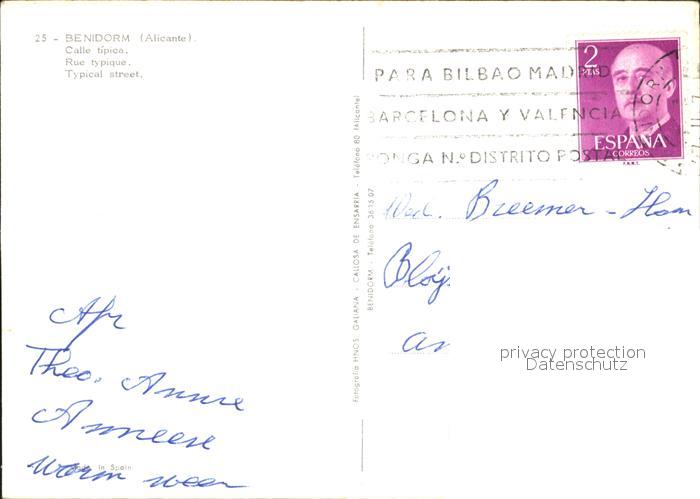 25 - BENIDORM (Alicante).
Calle típica.
Rue typique.
Typical street.
PARA BILBAO MADRID
BARCELONA Y VALENCIA
PONGA N.º DISTRITO POSTAL
2
PTAS
ESPAÑA
CORREOS
F.N.M.T.
Fotografía HNOS. GALIANA - CALLOSA DE ENSARRIA - Teléfono 80 (Alicante)
BENIDORM - Teléfono 361507
Wed. Breemer - Ham
privacy protection
Datenschutz
Afz
Theo. Annie
Anneese
in Spain